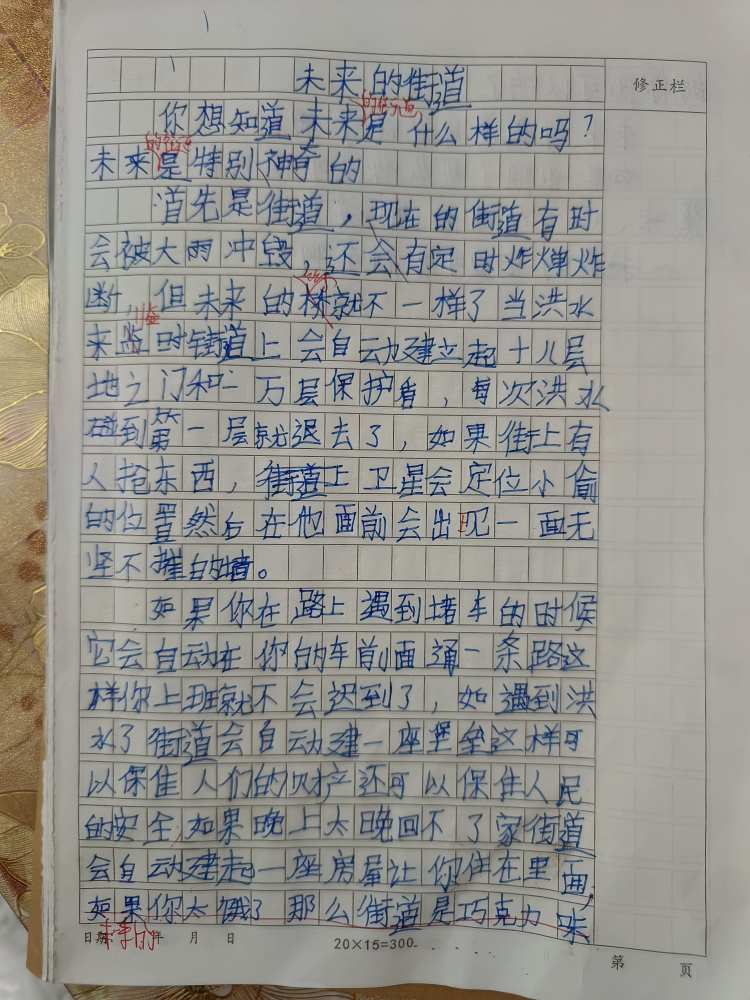 修正栏
未来的街道
的街道
你想知道未来是什么样的吗？
的街道
未来是特别神奇的
首先是街道，现在的街道有时
会被大雨冲毁，还会有定时炸弹炸
断，但未来的桥就不一样了当洪水
来监时街道上会自动建立起十八层
地之门和一万层保护盾，每次洪水
碰到第一层就退去了，如果街上有
人抢东西，街道上卫星会定位小偷
的位置然后在他面前会出现一面无
坚不摧的墙。
如果你在路上遇到堵车的时候
它会自动在你的车前面通一条路这
样你上班就不会迟到了，如遇到洪
水了街道会自动建一座堡垒这样可
以保住人们的财产还可以保住人民
的安全如果晚上太晚回不了家街道
会自动建起一座房屋让你住在里面，
如果你太饿了那么街道是巧克力味
未来的
日期 年 月 日
20×15=300
第 页